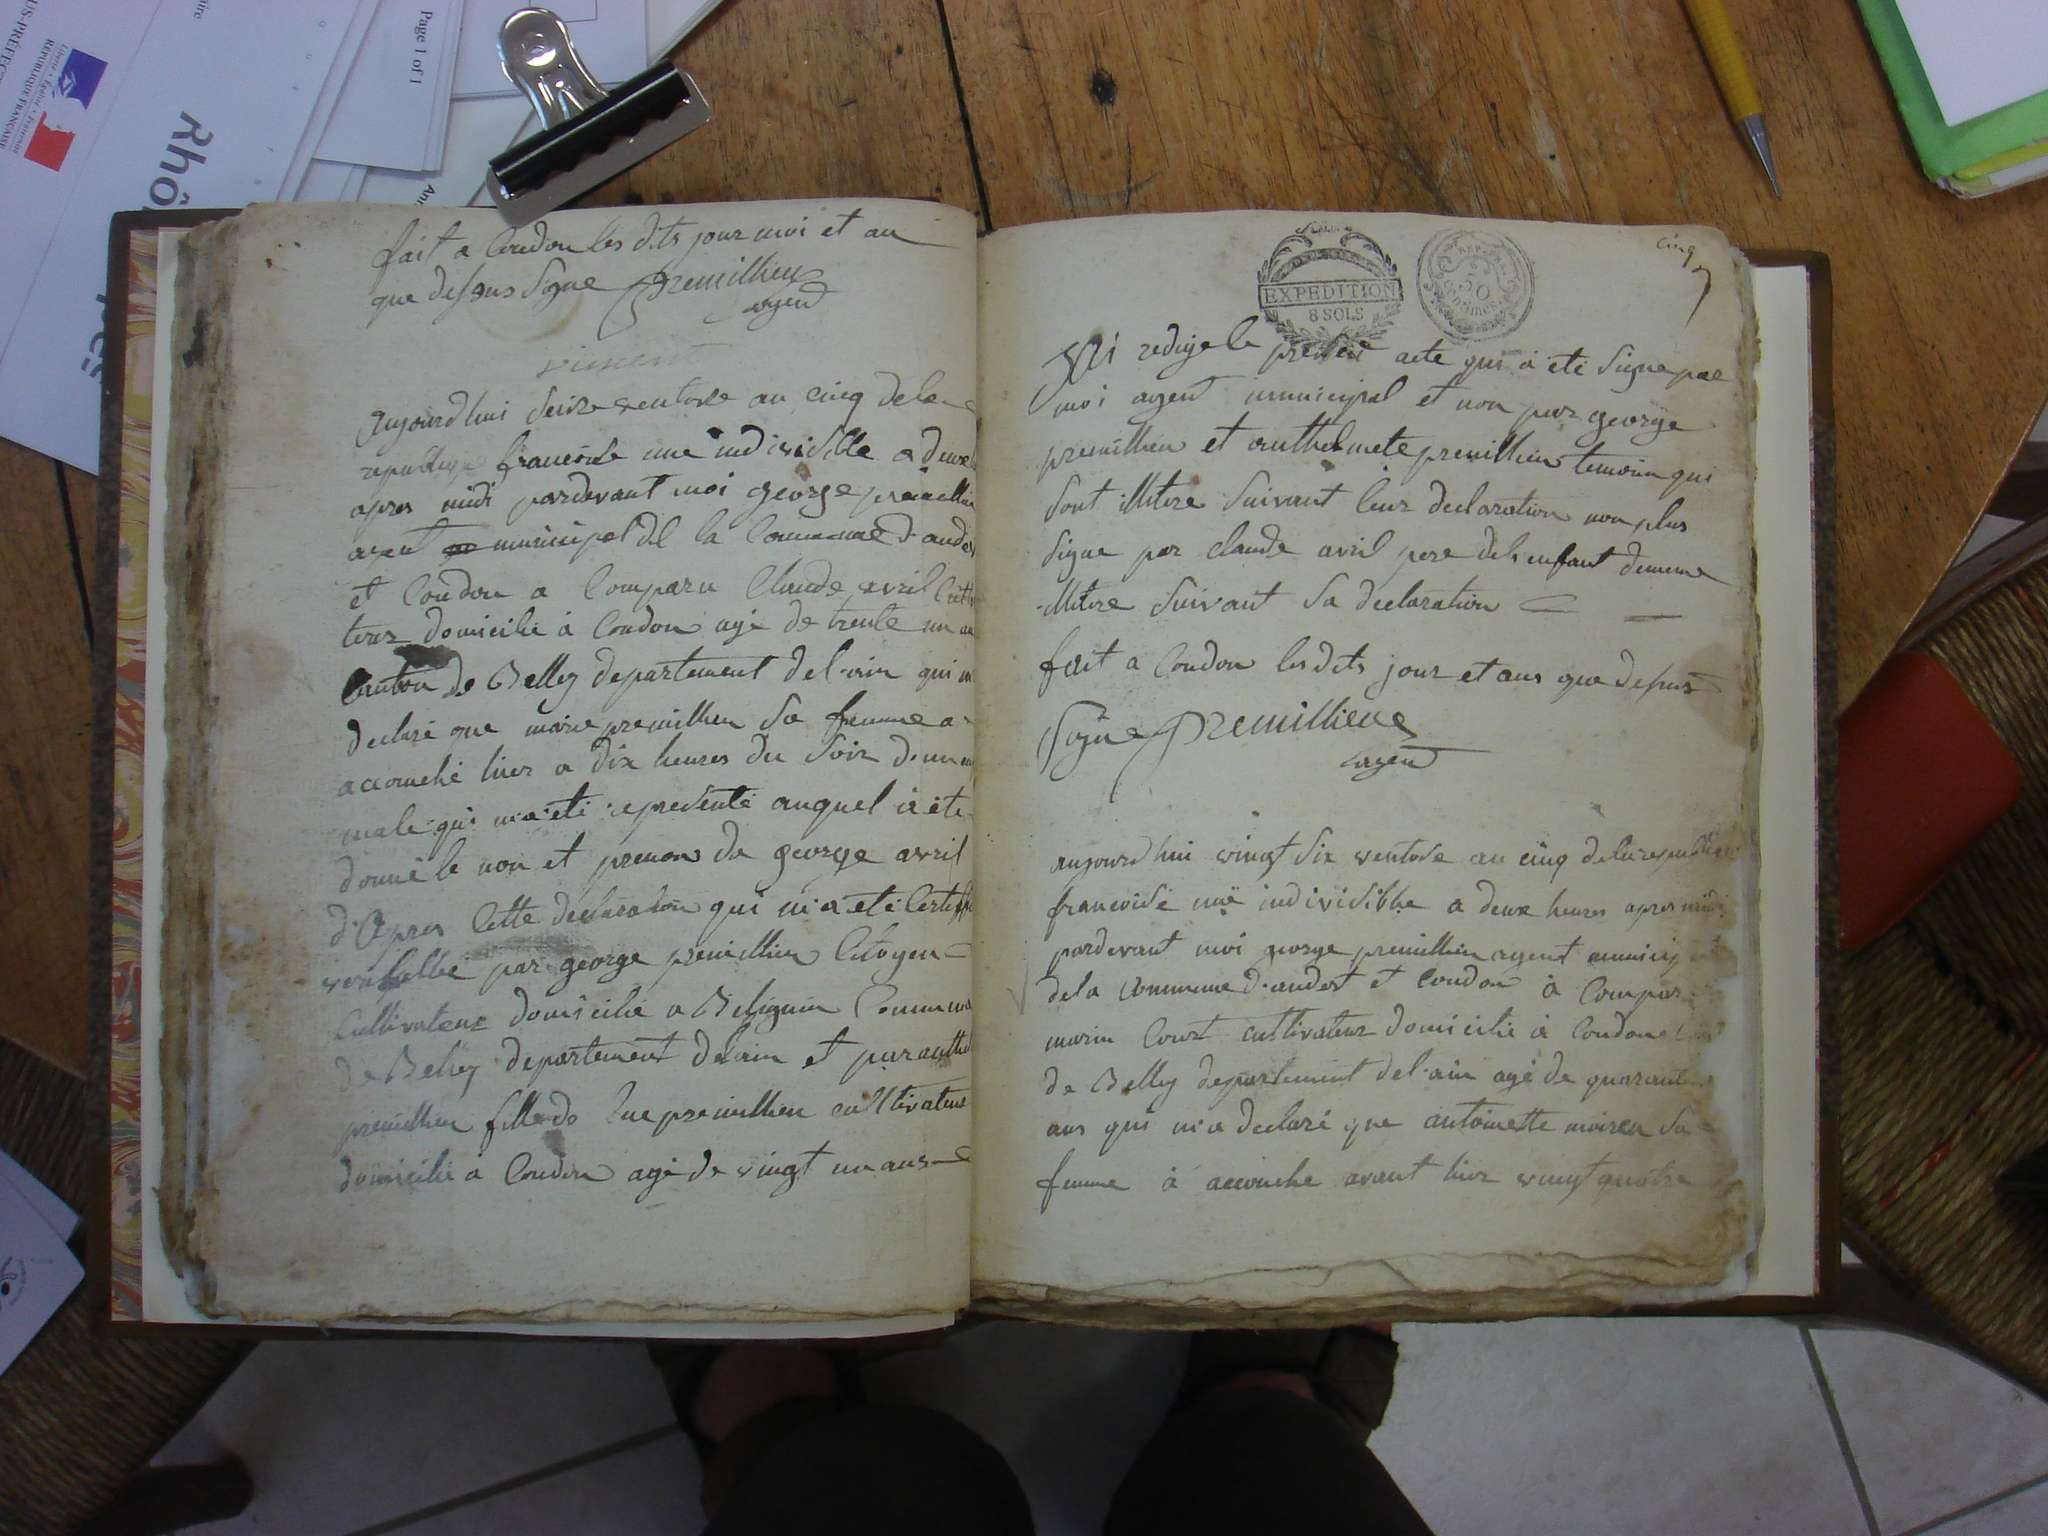 Page 1 of 1
RÉPUBLIQUE FRANÇAISE
Rhô
fait a Coudon les dits jour moi et an
que dessus Signe Premillieu
agent
aujourd'hui Seize ventose an cinq de la
republique francoise une indivisible a deux
apres midi pardevant moi george premillieu
agent municipal de la Commune d'andert
et Coudon a Comparu Claude avril Culti
teur domicilié à Coudon agé de trente un an
Canton de Belley departement de l'ain qui m
declaré que marie premillieu Sa femme a
accouché hier a dix heures du Soir d'un
male qui m'a eté representé auquel à eté
donné le non et prenon de george avril
d'apres Cette declaration qui m'a eté Certiffi
par george premillieu Citoyen
Cultivateur domicilié a Belignin Commune
de Belley departement de lain et par anthel
premillieu fille de Luc premillieu cultivateur
domicilié a Coudon agé de vingt un ans
cinq
EXPEDITION
8 SOLS
50
Centimes
J'ai redigé le present acte qui à eté Signe par
moi agent municipal et non par george
premillieu et anthelmete premillieu temoin qui
Sont illitere Suivant leur declaration non plus
Signe par claude avril pere de lenfant dememe
illitere Suivant Sa declaration
fait a Coudon les dits jour et ans que dessus
Signe Premillieu
agent
aujourd'hui vingt Six ventose an cinq de la republique
francoise une indivisible a deux heures apres midi
pardevant moi george premillieu agent municip
de la Commune d'andert et Coudon à Compar
marin Court cultivateur domicilié à Coudon
de Belley departement de l'ain agé de quarante
ans qui m'a declaré que antoinette moiren Sa
femme à accouché avant hier vingt quatre